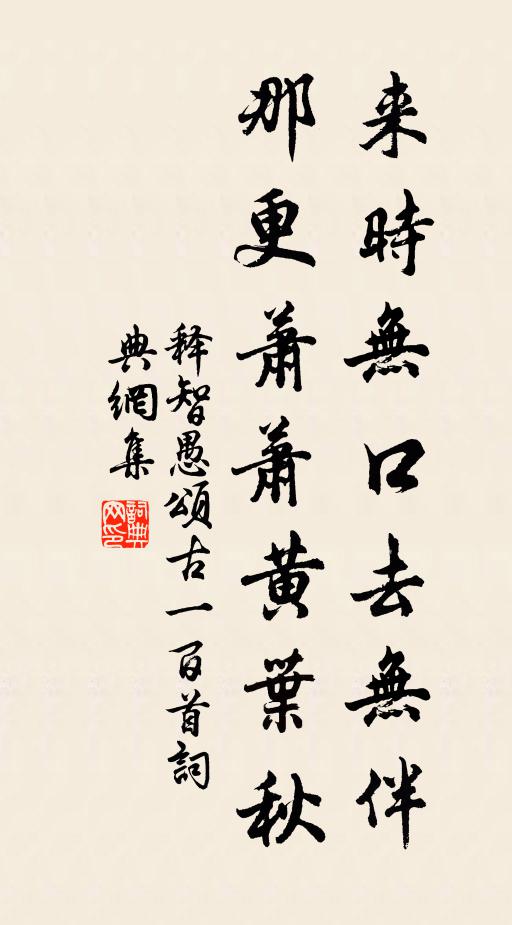 来時無口去無伴
那更蕭蕭黄葉秋
释智愚頌古一百首詞
典網集
詞典网印